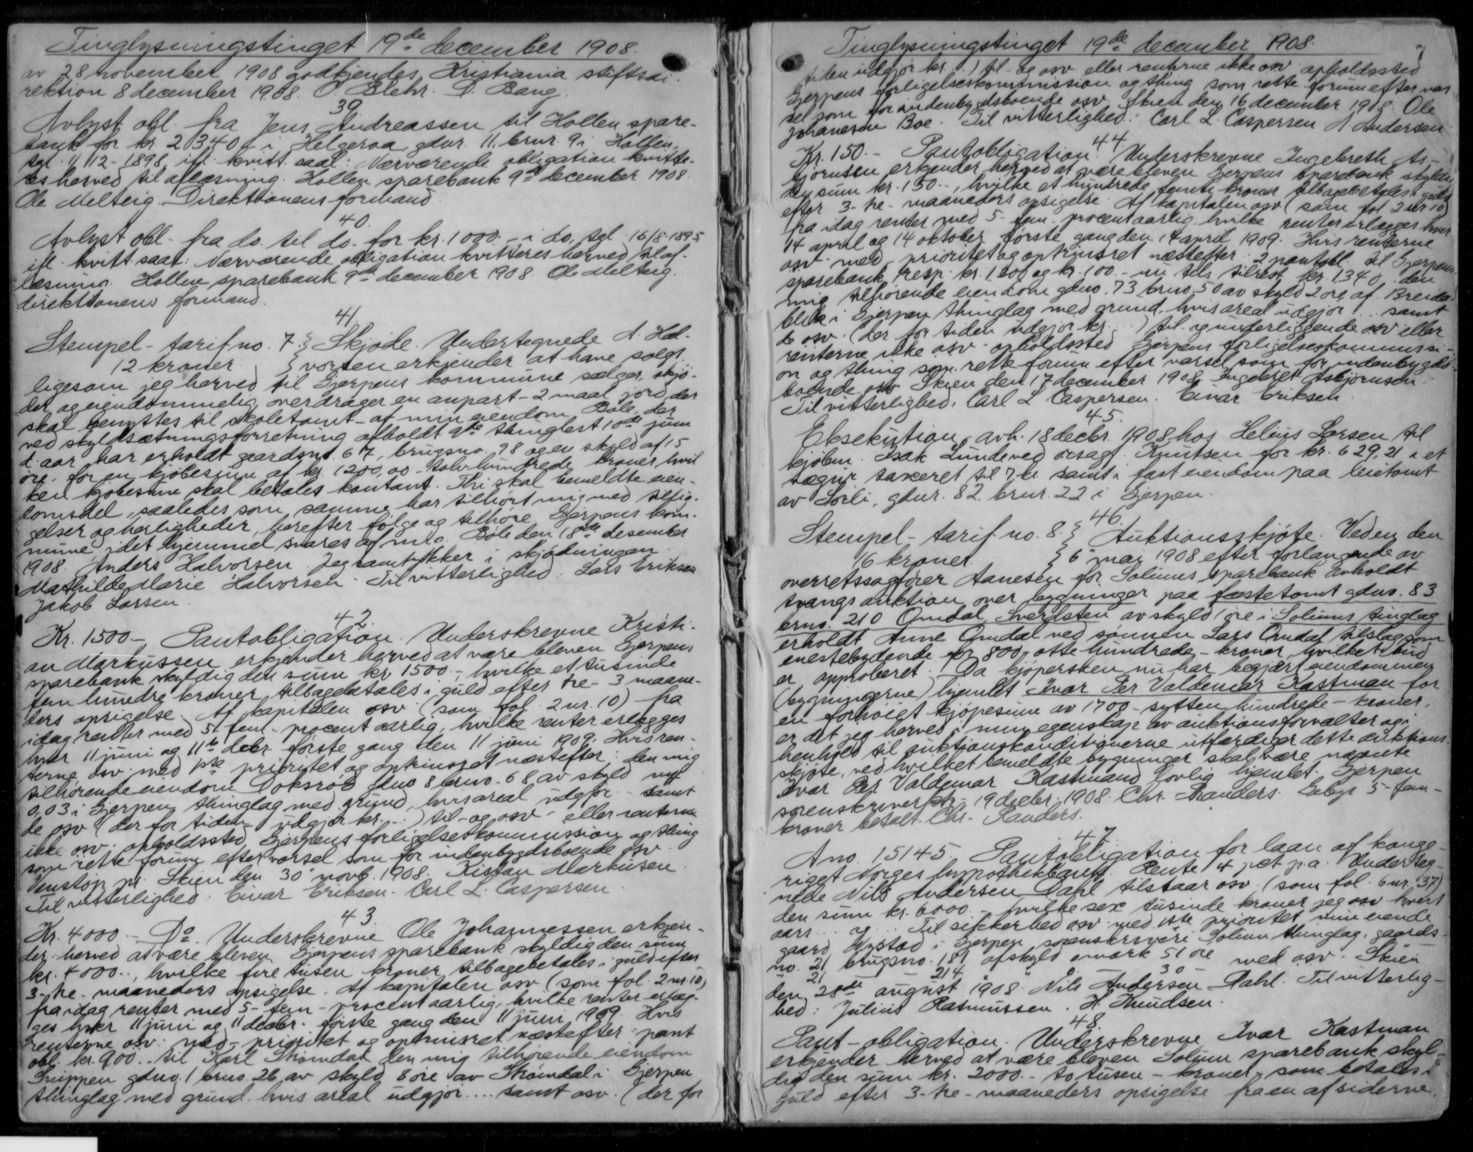 Tinglysningstinget 19de december 1908.
av 28 november 1908 godkjendes Kristiania stiftsdi-
rektion 8 december 1908. O Blehr. D. Bang.
39
Avlyst obl. fra Jens Andreassen til Hollen spare-
bank for kr. 21340.- i Helgeroa gdnr. 11, brnr. 9 i Hollen,
tgl. 11/12-1898, ifl. kvitt saal: Nærværende obligation kvitte-
res herved til avlæsning. Hollen sparebank 9de december 1908.
Ole Melteig Direktionens formand
40.
Avlyst obl. fra do. til do. for kr. 1000.- i do, tgl. 16/8 1895
ifl. kvitt saal: Nærværende obligation kvitteres herved til af-
læsning. Hollen sparebank 9de december 1908 Ole Melteig.
direktionens formand.
41
Stempel-tarif no. 7 } Skjøde. Undertegnede A. Hal-
12 kroner. } vorsen erkjender at have solgt
ligesom jeg herved til Gjerpens kommune sælger skjø-
der og eiendommelig overdrager en anpart - 2 maal jord, der
skal benyttes til skoletomt - af min eiendom Bøle, der
ved skyldsætningsforretning afholdt 9de thinglæst 10de juni
d. aar, har erholdt gaardsno 67, brugsno. 78 og en skyld af 15
øre for en kjøbesum af kr 1200,00 - tolv hundrede kroner, hvil
ken kjøbesum skal betales kontant. Thi skal bemeldte eien-
domsdel, saaledes som samme har tilhørt mig med rettig-
gelser og herligheder, herefter følge og tilhøre Gjerpens kom-
mune, idet hjemmel svares af mig. Bøle den 18de desember
1908 Anders Halvorsen Jeg samtykker i skjødningen
Mathilde Marie Halvorsen. Til vitterlighed. Lars Eriksen
Jakob Larsen.
42.
Kr. 1500 -, Pantobligation. Underskrevne Kristi-
an Markussen, erkjender herved at være bleven Gjerpens
sparebank skyldig den sum kr 1500 -, hvilke et tusinde
fem hundre kroner, tilbagebetales i guld efter tre - 3 maane-
ders opsigelse. Af kapitalen osv (som fol. 2 nr. 10) fra
idag renter med 5 - fem - procent aarlig, hvilke renter erlægges
hver 11 juni og 11te decbr. første gang den 11 juni 1909. Hvis ren-
terne osv: med 1ste prioritet og optrinsret næstefter: den mig
tilhørende eiendom Doksrød gdno 8 brno. 68 av skyld my
0,03 i Gjerpen thinglag med grund, hvis areal udgjør... samt
de osv (der for tiden udgjør kr...) til- og osv. eller renterne
ikke osv. opholdssted Gjerpens forligelseskommission og thing
som rette forum efter varsel som for indenbygdsboende osv
Venstøp pr. Skien den 30 novb. 1908. Kistian Markusen.
Til vitterlighed: Einar Eriksen. Carl L. Caspersen.
43.
Kr. 4000.- Do. Underskrevne Ole Johannessen erkjen-
der herved at være bleven Gjerpens sparebank skyldig den sum
kr. 4000.-, hvilke fire tusen kroner tilbagebetales i guld efter
3-tre- maaneders opsigelse. Af kapitalen osv (som fol 2 nr 10)
fra idag renter med 5-fem-procent aarlig hvilke renter erlæg-
ges hver 11 juni og 11 decbr. første gang den 11 juni 1909. Hvis
renterne osv: med prioritet og optrinsret næstefter: pant
obl. kr. 900.- til Karl Strømdal den mig tilhørende eiendom
Snippen gdno. 1 brno. 26 av skyld 8 øre av Strømdal i Gjerpen
thinglag med grund hvis areal udgjør.... samt osv. (der for
Tinglysningstinget 19de december 1908. 7
tiden udgjør kr...) til- og osv eller renterne ikke osv opholdssted
Gjerpens forligelseskommission og thing som rette forum efter var
sel som for indenbygdsboende osv. Skien den 16 december 1908. Ole
Johannesen Boe. Til vitterlighed: Carl L. Caspersen A Andersen
44
Kr. 150.- Pantobligation. Underskrevne Ingebreth As-
bjørnsen, erkjender herved at være bleven Gjerpens sparebank skyldig
den sum kr. 150.-, hvilke et hundrede femti kroner tilbagebetales i guld
efter 3-tre-maaneders opsigelse. Af kapitalen osv (som fol 2 nr 10)
fra idag renter med 5-fem-procent aarlig, hvilke renter erlægges hver
14 april og 14 oktober første gang den 14 april 1909. Hvis renterne
osv: med prioritet og optrinsret næstefter: 2 pantobl. til Gjerpens
sparebank resp. kr. 1200 og kr. 100.- nu tils. tilrest kr. 1340, den
mig tilhørende eiendom gdno. 73 brno 50 av skyld 2 øre af Breida-
blik i Gjerpen thinglag med grund, hvis areal udgjør... samt
de osv. (der for tiden udgjør kr...) til og underliggende osv eller
renterne ikke osv opholdssted Gjerpens forligelseskommissi-
on og thing som rette forum efter varsel som for indenbygds
boende osv Skien den 17 december 1908 Ingebret Asbjørnsen.
Til vitterlighed. Carl L Caspersen. Einar Eriksen.
45.
Eksekution avh. 18 decbr 1908 hos Helius Larsen til
kjøbm. Isak Lunde ved orsagf. Knutsen for kr. 629,21 i et
taxeret til 7 kr samt i fast eiendom paa leietomt
av Sorli, gdnr. 82 brnr. 22 i Gjerpen.
46.
Stempel-tarif no. 8. } Auktionsskjøte. Ved en den
16 kroner } 6te mai 1908 efter forlangende av
overretssagfører Aanesen for Solums sparebank avholdt
tvangsauktion over bygninger paa fæstetomt gdno. 83
brno. 210 Omdal Sverdsten av skyld øre i Solums tinglag
erholdt Anne Omdal ved sønnen Lars Omdal tilslag som
enestebydende for 800, otte hundrede - kroner, hvilket bud
er approberet. Da kjøpersken nu har begjært eiendommen
(bygningerne) hjemlet Ivar Per Valdemar Kastman for
en forhøiet kjøpesum av 1700 - sytten hundrede - kroner,
er det jeg herved i min egenskap av auktionsforvalter og i
henhold til auktionskonditionerne utfærdiger dette auktions
skjøte, ved hvilket bemeldte bygninger skal være nævnte
Ivar Per Valdemar Kastmand lovlig hjemlet. Gjerpen
sorenskriverktr. 19 decbr. 1908. Chr. Randers. Gebyr 5 - fem-
kroner betalt. Chr. Randers.
47.
A no. 15145. Pantobligation for laan af konge-
riget Norges hypothekbank. Rente 4 pct p.a. Underteg-
nede Nils Andersen Dahl tilstaar osv (som fol. 6 nr. 37)
den sum kr. 6000.- hvilke sex tusinde kroner jeg osv hvert
aars.. og.. Til sikkerhed osv med 1ste prioritet min eiende
gaard Nystad i Gjerpen sorenskriveri Solum thinglag, gaards-
no. 21 brugsno. 18 af skyld 0 mark 51 øre med osv. Skien
21 214 30
den 28de august 1908. Nils Andersen Dahl. Til vitterlig-
hed: Julius Rasmussen. H. Knudsen.
48.
Pant-obligation. Underskrevne Ivar Kastman
erkjender herved at være bleven Solum sparebank skyl-
dig den sum kr. 2000.- to tusen - kroner, som betales i
guld efter 3-tre-maaneders opsigelse fra en af siderne.